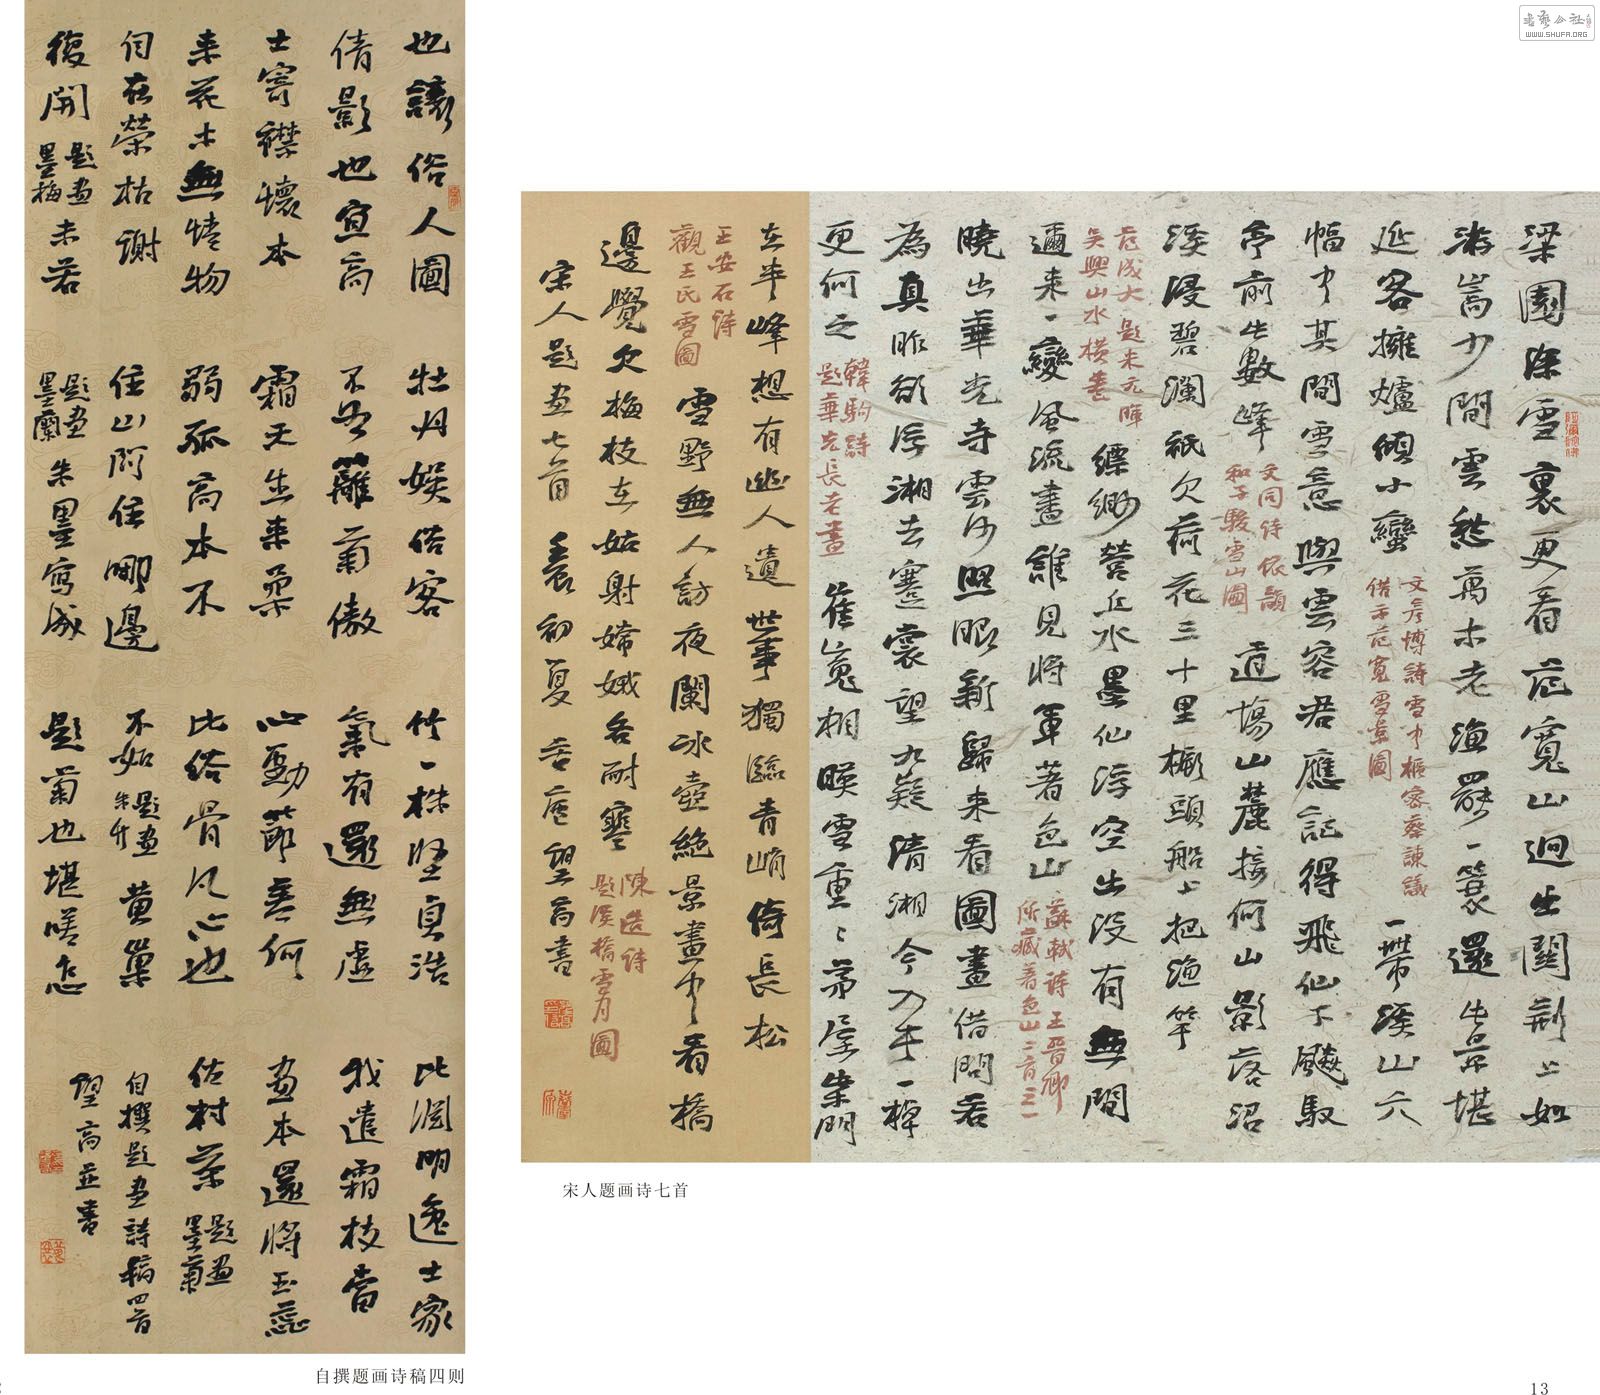 也讓俗人圖
倩影也宜高
士寄襟懷本
來花木無情物
何在榮枯謝
復開 題畫墨梅 未若
牡丹娛俗客
不如籬菊傲
霜天生來柔
弱孤高本不
住山阿住哪邊
題畫墨蘭 朱墨寫成
竹一株堅貞浩
氣有還無虛
心勁節吾何
比俗骨凡心也
不如 題畫朱竹 黃巢
題菊也堪嗟怎
比淵明逸士家
我遣霜枝當
畫本還將玉蕊
佐村茶 題畫墨菊
自撰題畫詩稿四首
望高並書
自撰题画诗稿四则
梁園深雪裏更看范寬山迥出關荊上如
游嵩少間雲愁萬木老漁罷一蓑還此景堪
延客擁爐傾小蠻 文彥博詩雪中樞密蔡諫議借示范寬雪景圖 一帶溪山六
幅中其間雪意與雲容君應記得飛仙下飈馭
亭前此數峰 文同詩依韻和子駿雪山圖 道場山麓接何山影落沼
溪浸碧瀾祇欠荷花三十里橛頭船上把漁竿
范成大題米元暉吳興山水橫卷 縹緲營丘水墨仙浮空出沒有無間
邇來一變風流盡誰見將軍著色山 蘇軾詩王晉卿所藏著色山二首之一
曉出華光寺雲沙照眼新歸來看圖畫借問若
為真昨欲浮湘去蹇裳望九嶷清湘今入手一棹
更何之 韓駒詩題華光長老畫 崔嵬相映雪重重茅屋柴門
在半峰想有幽人遺世事獨臨青峭倚長松
王安石詩觀王氏雪圖 雪野無人訪夜闌冰壺絕景畫中看橋
邊覺欠梅枝在姑射嫦娥各耐寒 陳造詩題溪橋雪月圖
宋人題畫七首 初夏 望高書
宋人题画诗七首
WWW.SHUFA.ORG
13